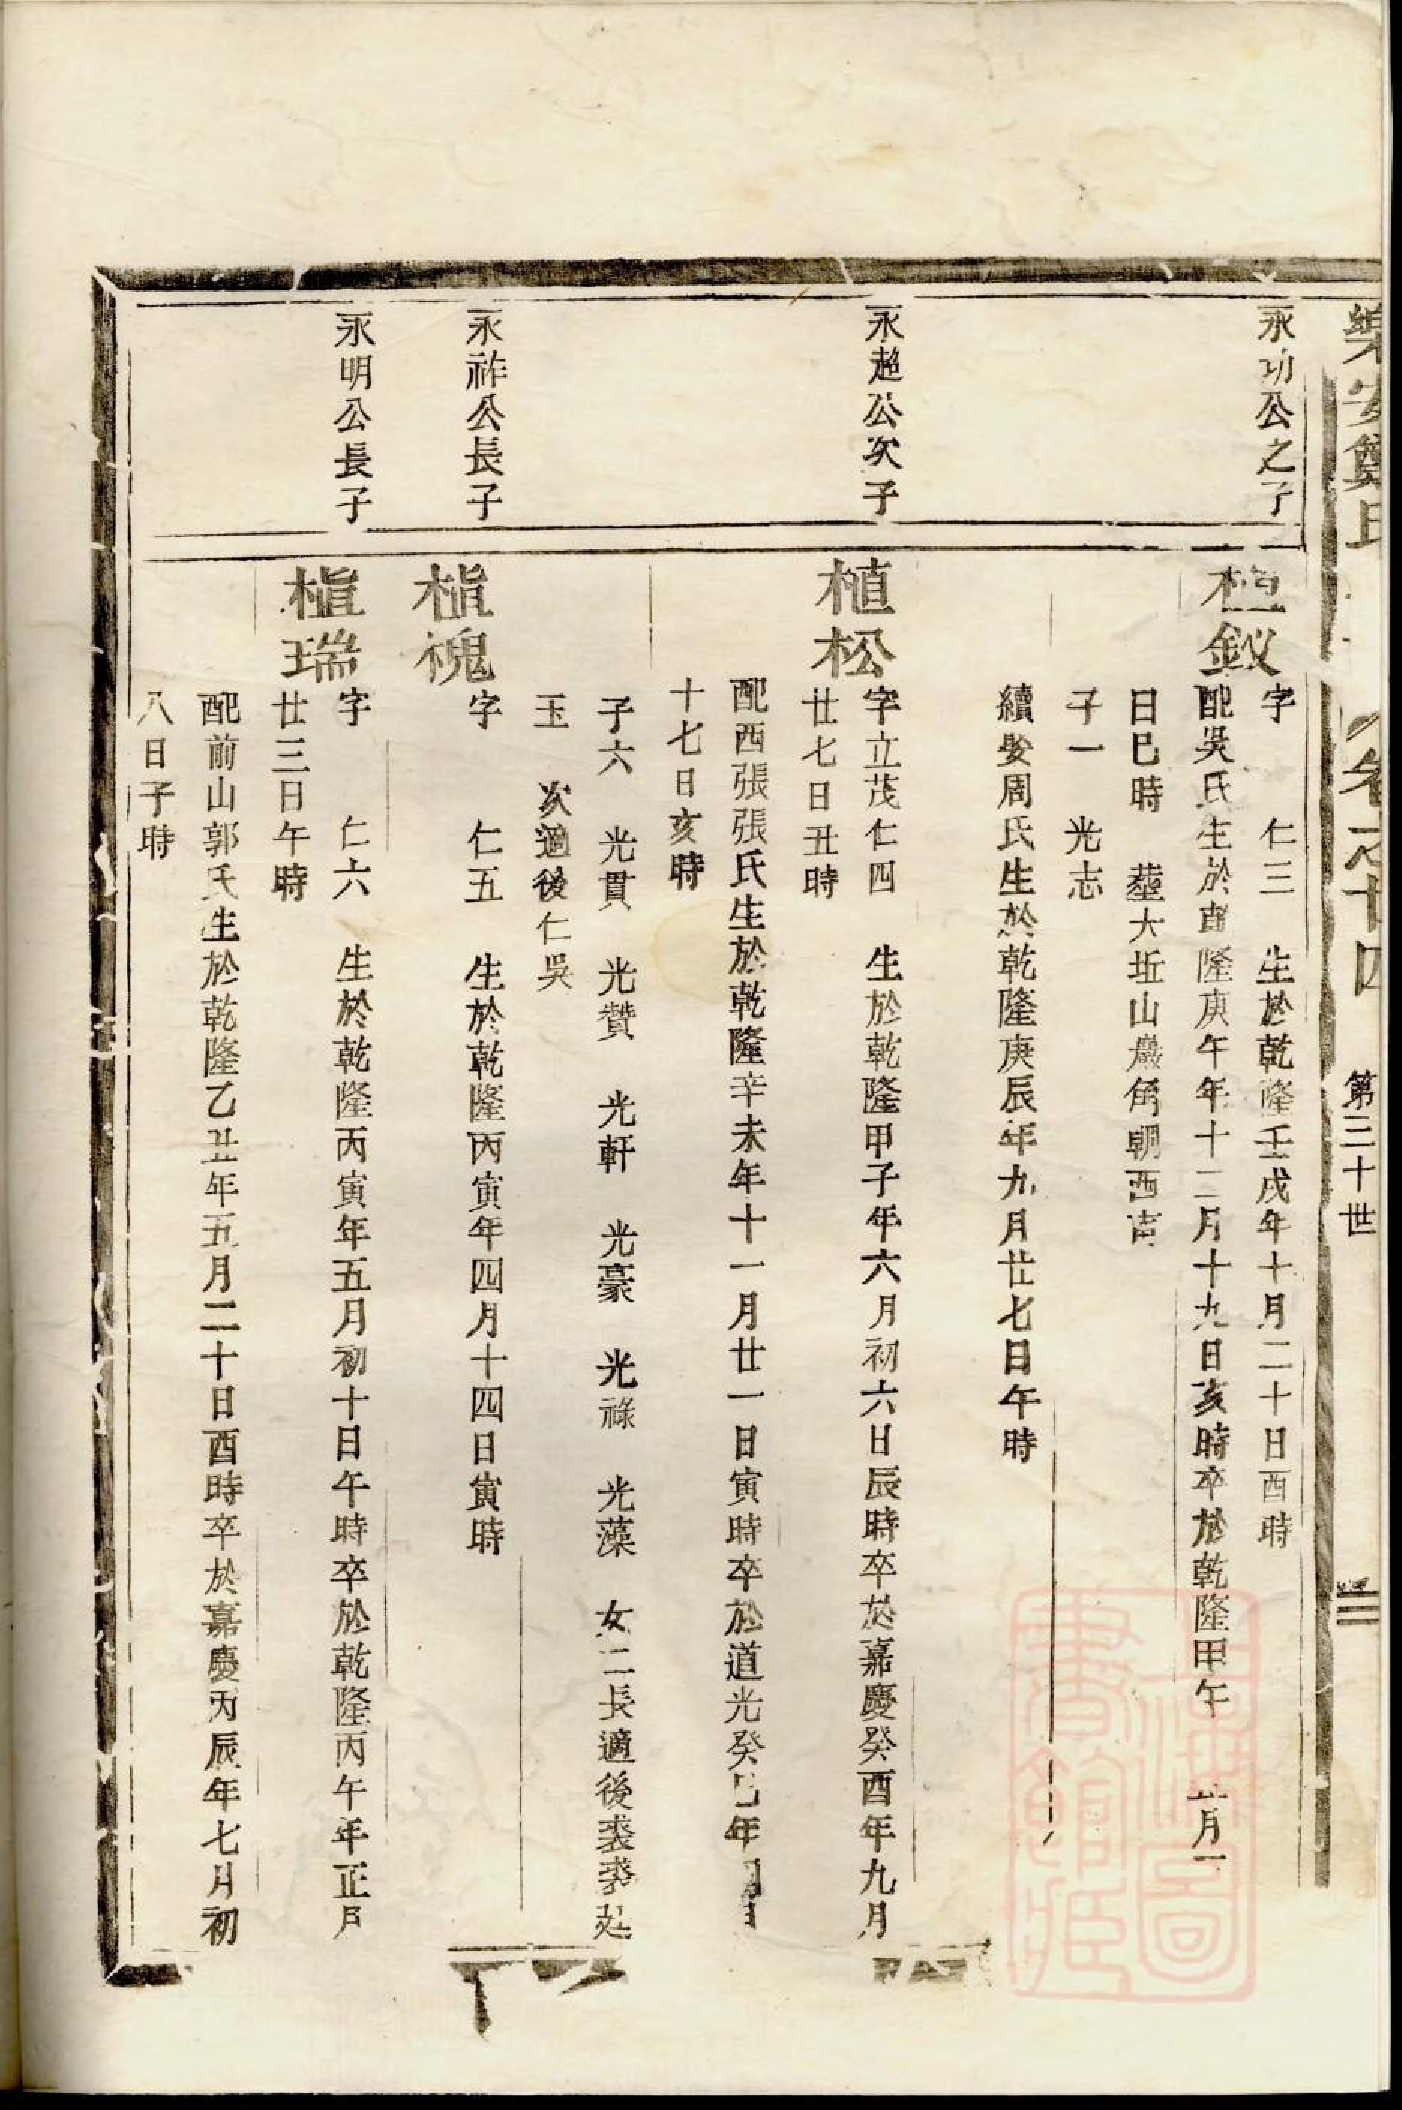 樂安鄭氏
卷之廿四 第三十世
永功公之子
植釵
字 仁三 生於乾隆壬戌年十月二十日酉時
配吳氏生於乾隆庚午年十二月十九日亥時卒於乾隆甲午 正月
日巳時 塟大坵山嚴角朝西
子一 光志
續娶周氏生於乾隆庚辰年九月廿七日午時
永超公次子
植松
字立茂仁四 生於乾隆甲子年六月初六日辰時卒於嘉慶癸酉年九月
廿七日丑時
配西張張氏生於乾隆辛未年十一月廿一日寅時卒於道光癸巳年
十七日亥時
子六 光貫 光贊 光軒 光豪 光祿 光藻 女二長適後裘裘起
玉 次適後仁吳
永祚公長子
植槐
字 仁五 生於乾隆丙寅年四月十四日寅時
永明公長子
植瑞
字 仁六 生於乾隆丙寅年五月初十日午時卒於乾隆丙午年正月
廿三日午時
配前山郭氏生於乾隆乙丑年五月二十日酉時卒於嘉慶丙辰年七月初
八日子時